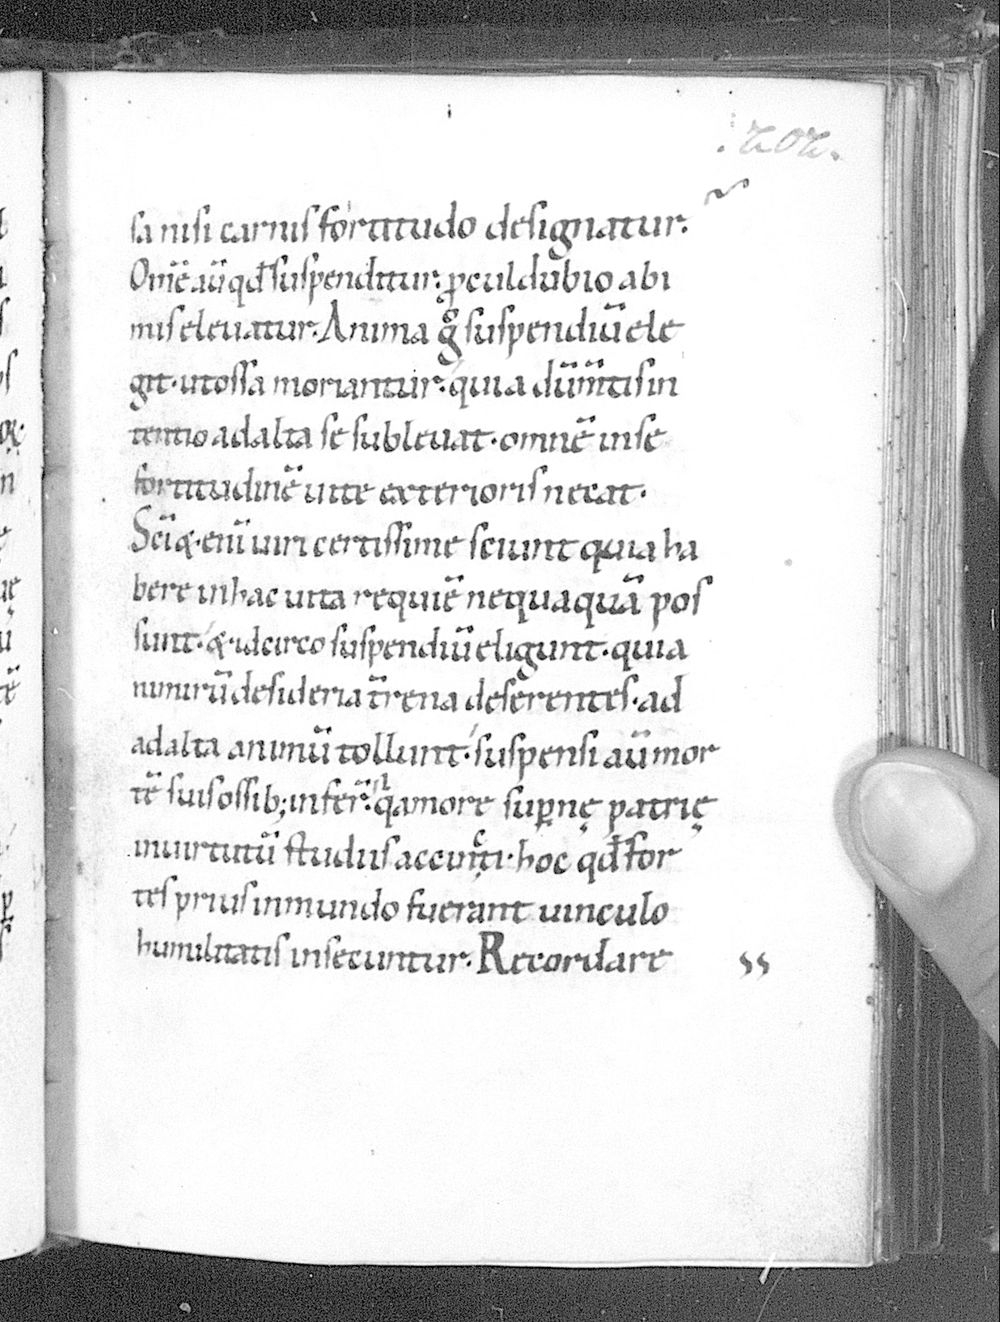 .202.
sa nisi carnis fortitudo designatur.
Om̄e aū qđ suspenditur. ꝓculdubio ab i
mis eleuatur. Anima g̊ suspendiū ele
git. ut ossa moriantur. quia dū m̄tis in
tentio ad alta se subleuat. omnē in se
fortitudinē uite exterioris necat.
Sc̄i &. enī uiri certissime sciunt quia ha
bere in hac uita requiē nequaquā pos
sunt. & idcirco suspendiū eligunt. quia
nimirū desideria t̄rena deserentes. ad
ad alta animū tollunt. suspensi aū mor
tē suis ossib; infer̄. q amore suꝑnę patrię
in uirtutū studiis accincti. hoc qđ for
tes prius in mundo fuerant uinculo
humilitatis insecuntur. Recordare